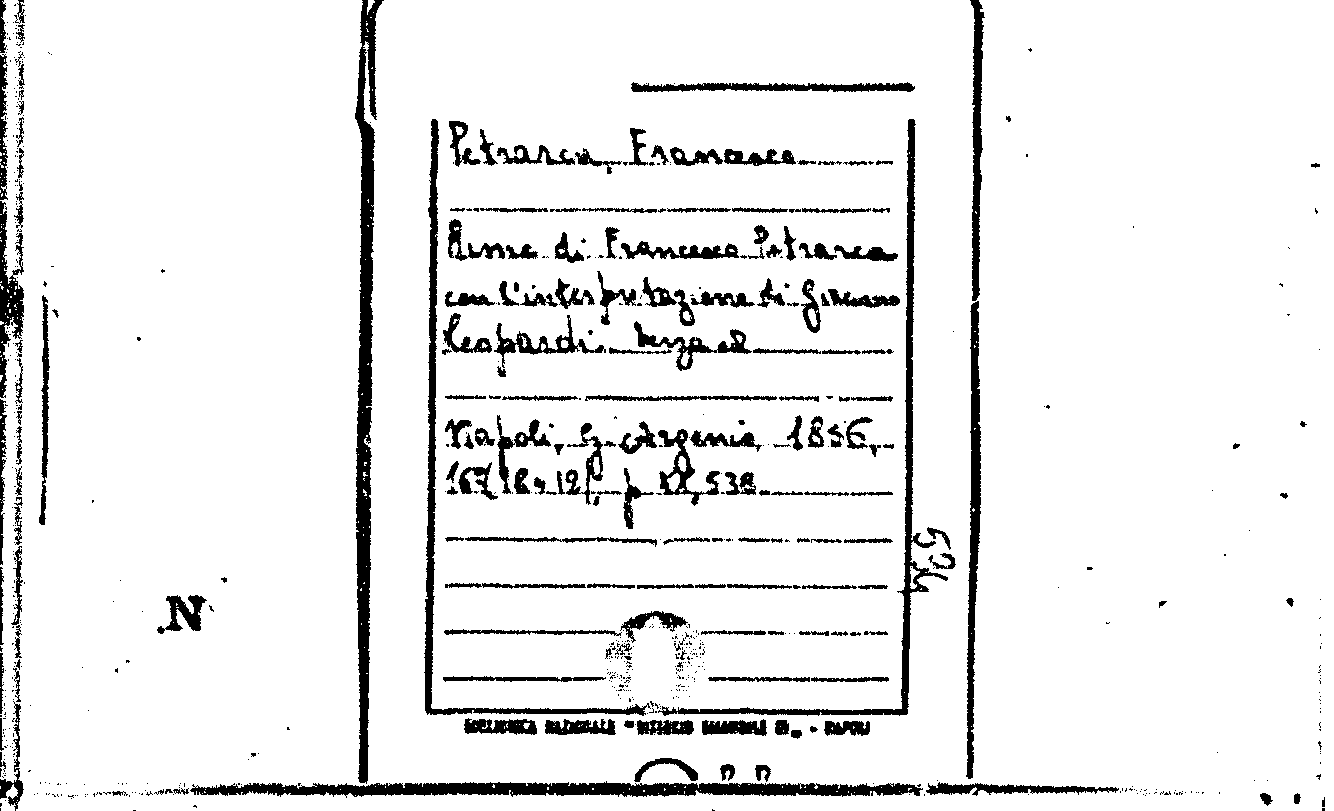 Petrarca, Francesco
Rime di Francesco Petrarca
con l'interpretazione di Giacomo
Leopardi. Terza ed
Napoli, G. Argenio, 1856,
p XX, 538
BIBLIOTECA NAZIONALE "VITTORIO EMANUELE III" - NAPOLI
N